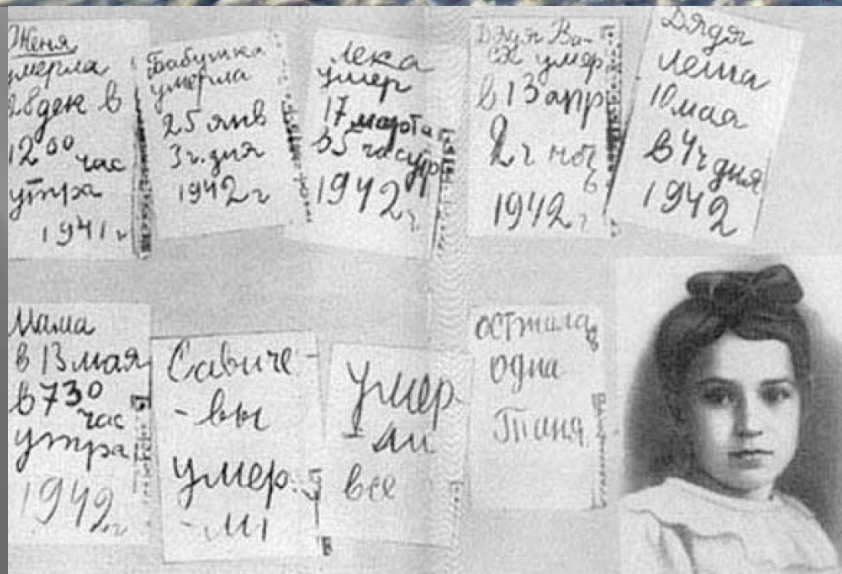 Женя
умерла
28 дек в
12 00 час
утра
1941 г
Бабушка
умерла
25 янв
3 ч. дня
1942 г
Лека
умер
17 марта
в 5 час утр
1942 г.
Дядя Ва-
ся умер
в 13 апр
2 ч ноч
ь
1942 г
Дядя
Леша
10 мая
в 4 ч дня
1942
Мама
в 13 мая
в 7 30
час
утра
1942 г
Савиче-
-вы
умер.
-ли
Умер
-ли
все
одна
Таня